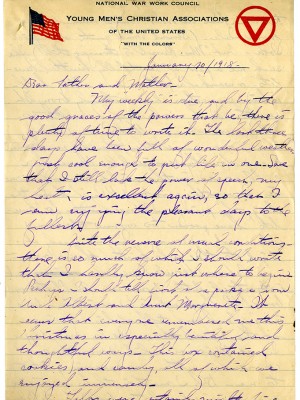 NATIONAL WAR WORK COUNCIL
YOUNG MEN'S CHRISTIAN ASSOCIATIONS
OF THE UNITED STATES
"WITH THE COLORS"
January 20/1918-
Dear Father and Mother-
My weekly is due and by the
good graces of the powers that be, there is
plenty of time to write it. The last three
days have been full of wonderful weather,
just cool enough to put life in one. Now
that I still have the power of speech, my
is excellent again, so then I
am enjoying the pleasant days to the
fullest.
Quite the reverse of usual conditions-
there is so much of which I should write
that I hardly know just where to begin
Perhaps I should tell first of a package from
Aunt Marguerite. It
seems that everyone remembered me this
Christmas in especially and
thoughtful ways. This box contained
cookies, and candy, all of which we
enjoyed immensely.